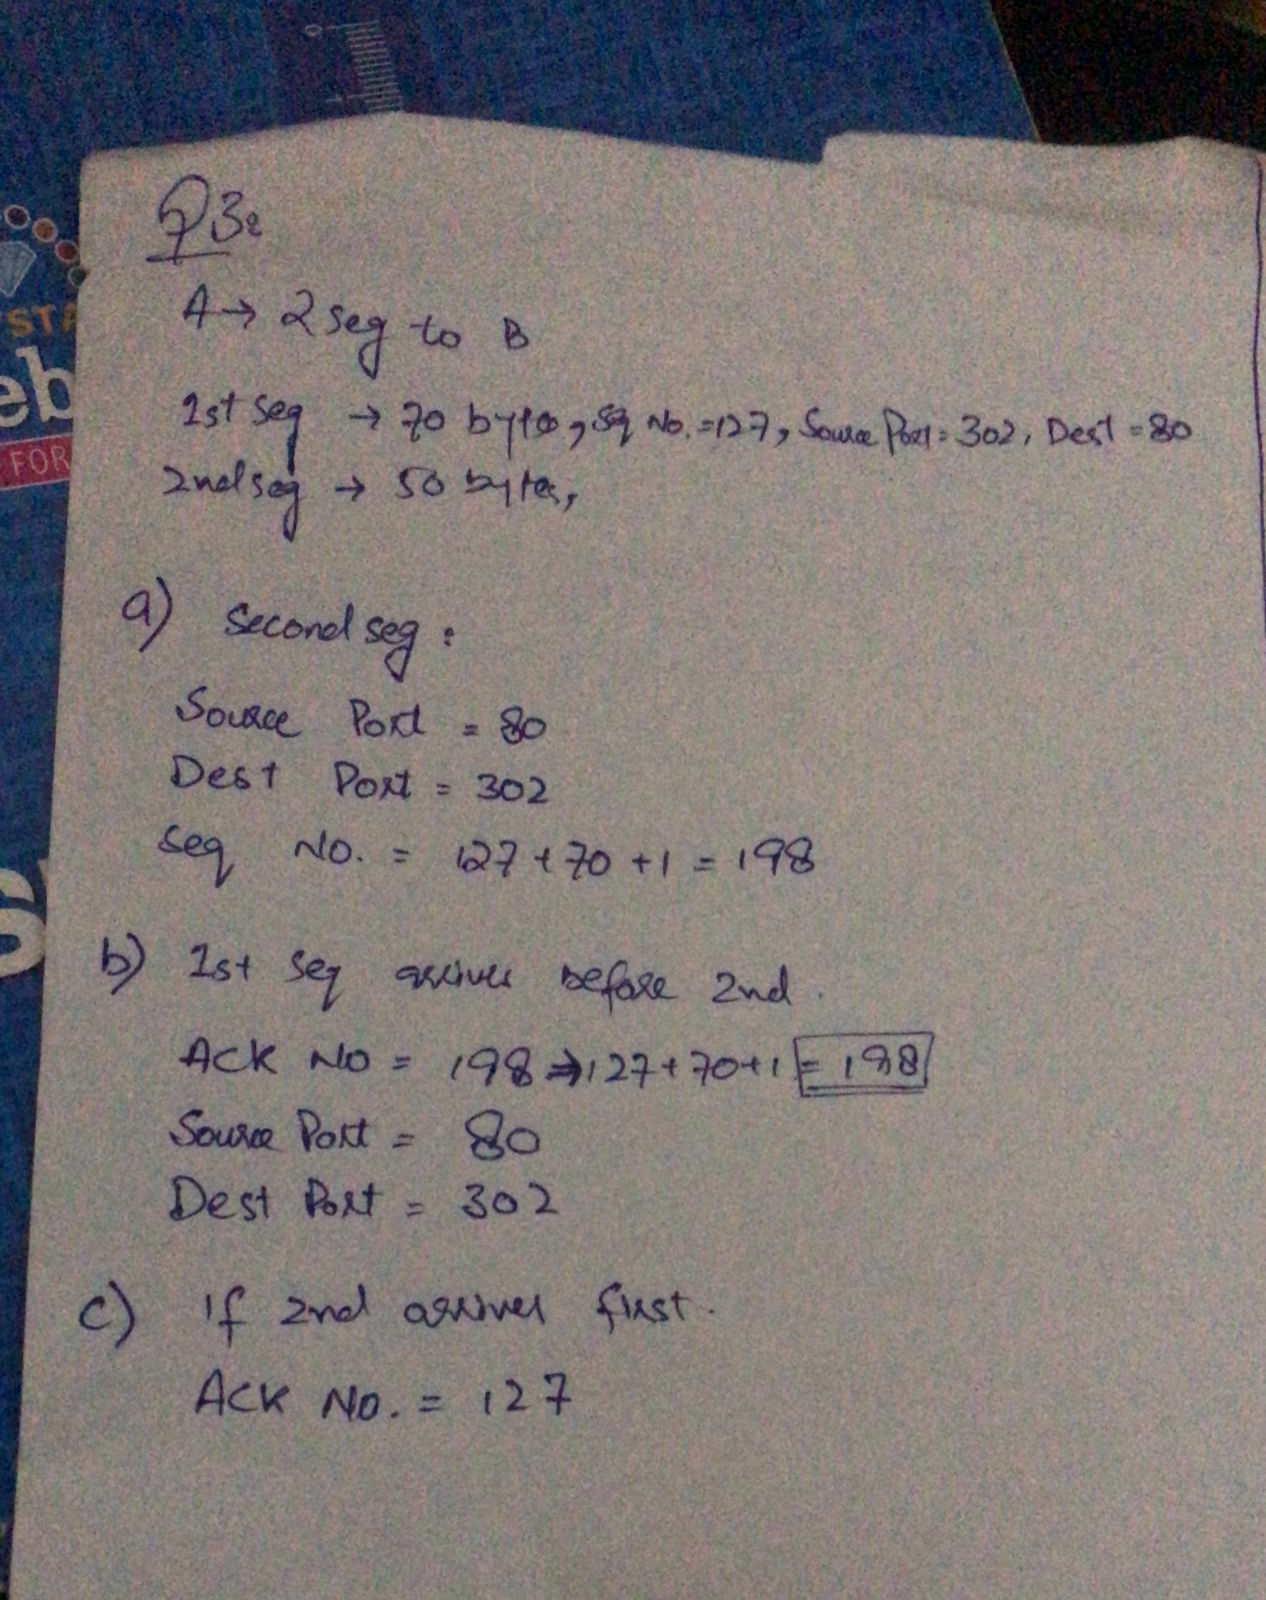 Q3:
A → 2 seg to B
1st seg → 70 bytes, Seq No. = 127, Source Port = 302, Dest = 80
2nd seg → 50 bytes,
a) Second seg:
Source Port = 80
Dest Port = 302
Seq No. = 127 + 70 + 1 = 198
b) 1st seq arrives before 2nd.
ACK NO = 198 ⇒ 127 + 70 + 1 = 198
Source Port = 80
Dest Port = 302
c) if 2nd arrives first.
ACK No. = 127
STA
eb
FOR
S